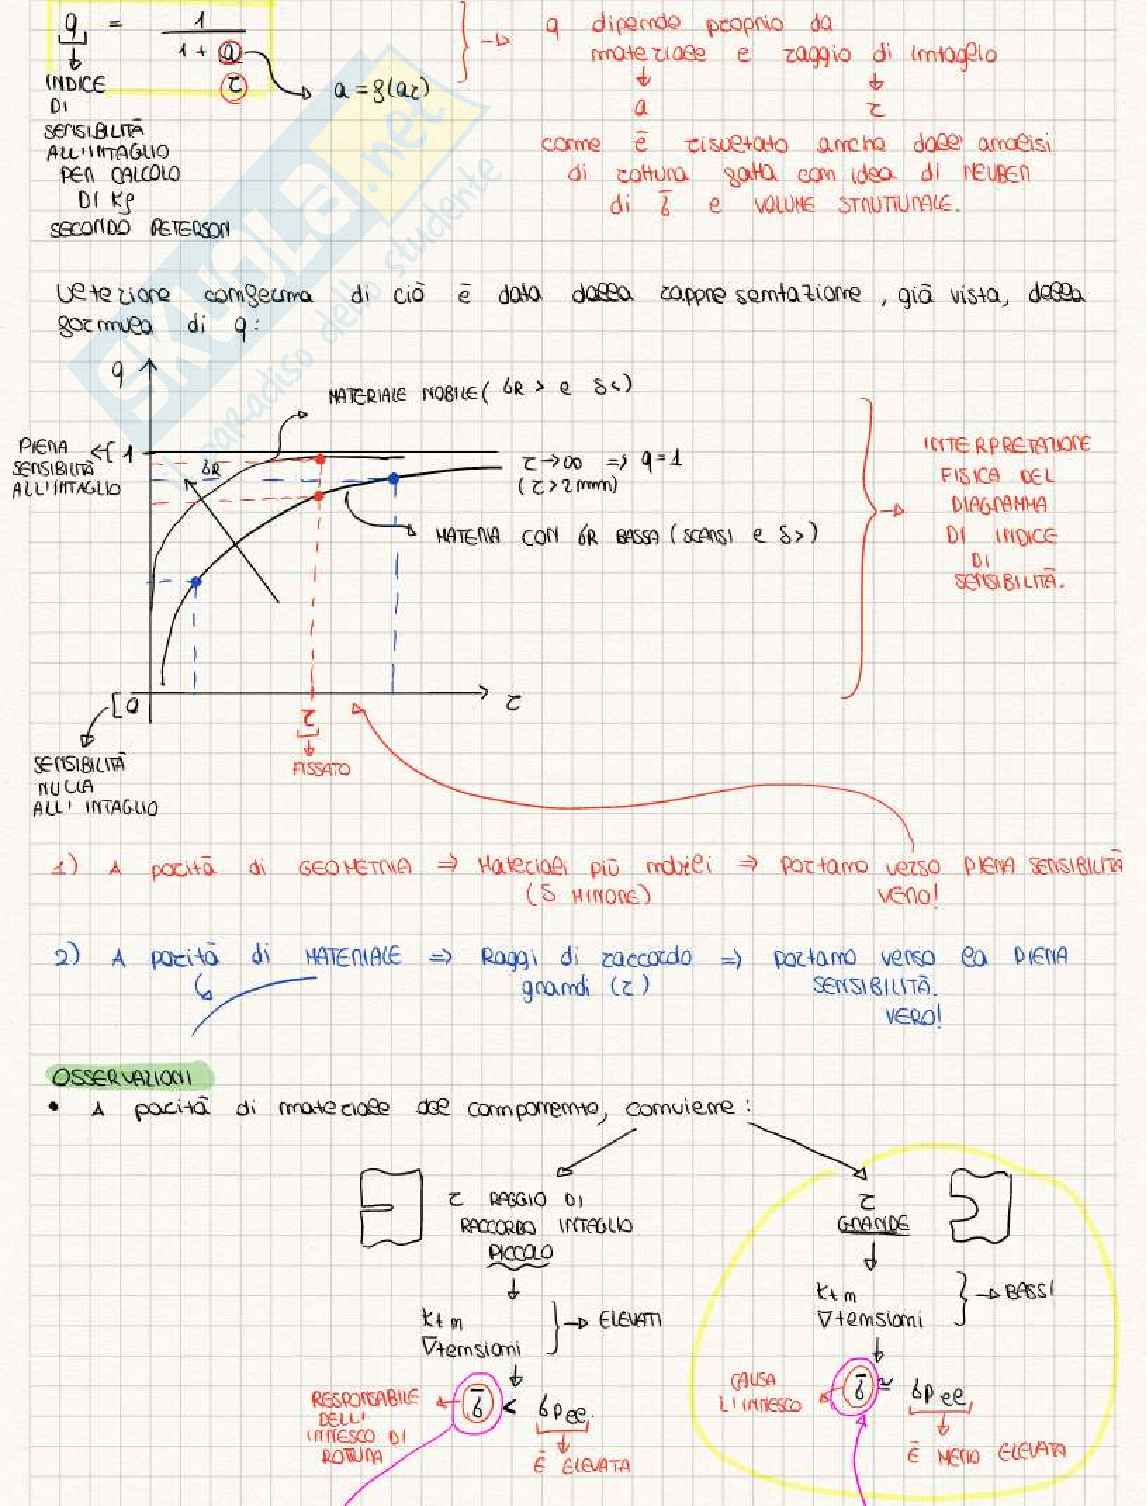 q = 1
1 + a
r
a = f(σr)
INDICE
DI
SENSIBILITÀ
ALL'INTAGLIO
PER CALCOLO
DI Kf
SECONDO PETERSON
→ q dipende proprio da
materiale e raggio di intaglio
a r
come è risultato anche dall'analisi
di rottura fatta con idea di NEUBER
di σ̄ e VOLUME STRUTTURALE.
SKUOLA.net
il paradiso dello studente
Ulteriore conferma di ciò è data dalla rappresentazione, già vista, della
formula di q:
q
MATERIALE NOBILE (σR > e δ<)
PIENA
SENSIBILITÀ
ALL'INTAGLIO
1
σR
r→∞ ⇒ q=1
(r>2mm)
MATERIA CON σR BASSA (SCARSI e δ>)
→ INTERPRETAZIONE
FISICA DEL
DIAGRAMMA
DI INDICE
DI
SENSIBILITÀ.
0
r
r
FISSATO
SENSIBILITÀ
NULLA
ALL'INTAGLIO
1) A parità di GEOMETRIA ⇒ Materiali più nobili ⇒ Portano verso PIENA SENSIBILITÀ
(δ MINORE) VERO!
2) A parità di MATERIALE ⇒ Raggi di raccordo ⇒ portano verso la PIENA
grandi (r) SENSIBILITÀ.
VERO!
OSSERVAZIONI
• A parità di materiale del componente, conviene:
r RAGGIO DI
RACCORDO INTAGLIO
PICCOLO
Ktm
∇tensioni
→ ELEVATI
RESPONSABILE
DELL'
INNESCO DI
ROTTURA
σ̄ < σpee
È ELEVATA
r
GRANDE
Ktm
∇tensioni
→ BASSI
CAUSA
L'INNESCO
σ̄ ≃ σpee
È MENO ELEVATA